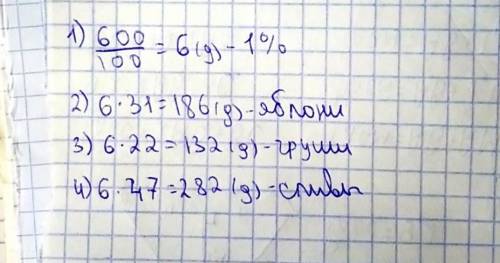 1) 600/100 = 6 (д) - 1%
2) 6 · 31 = 186 (д) - яблони
3) 6 · 22 = 132 (д) - груши
4) 6 · 47 = 282 (д) - сливы